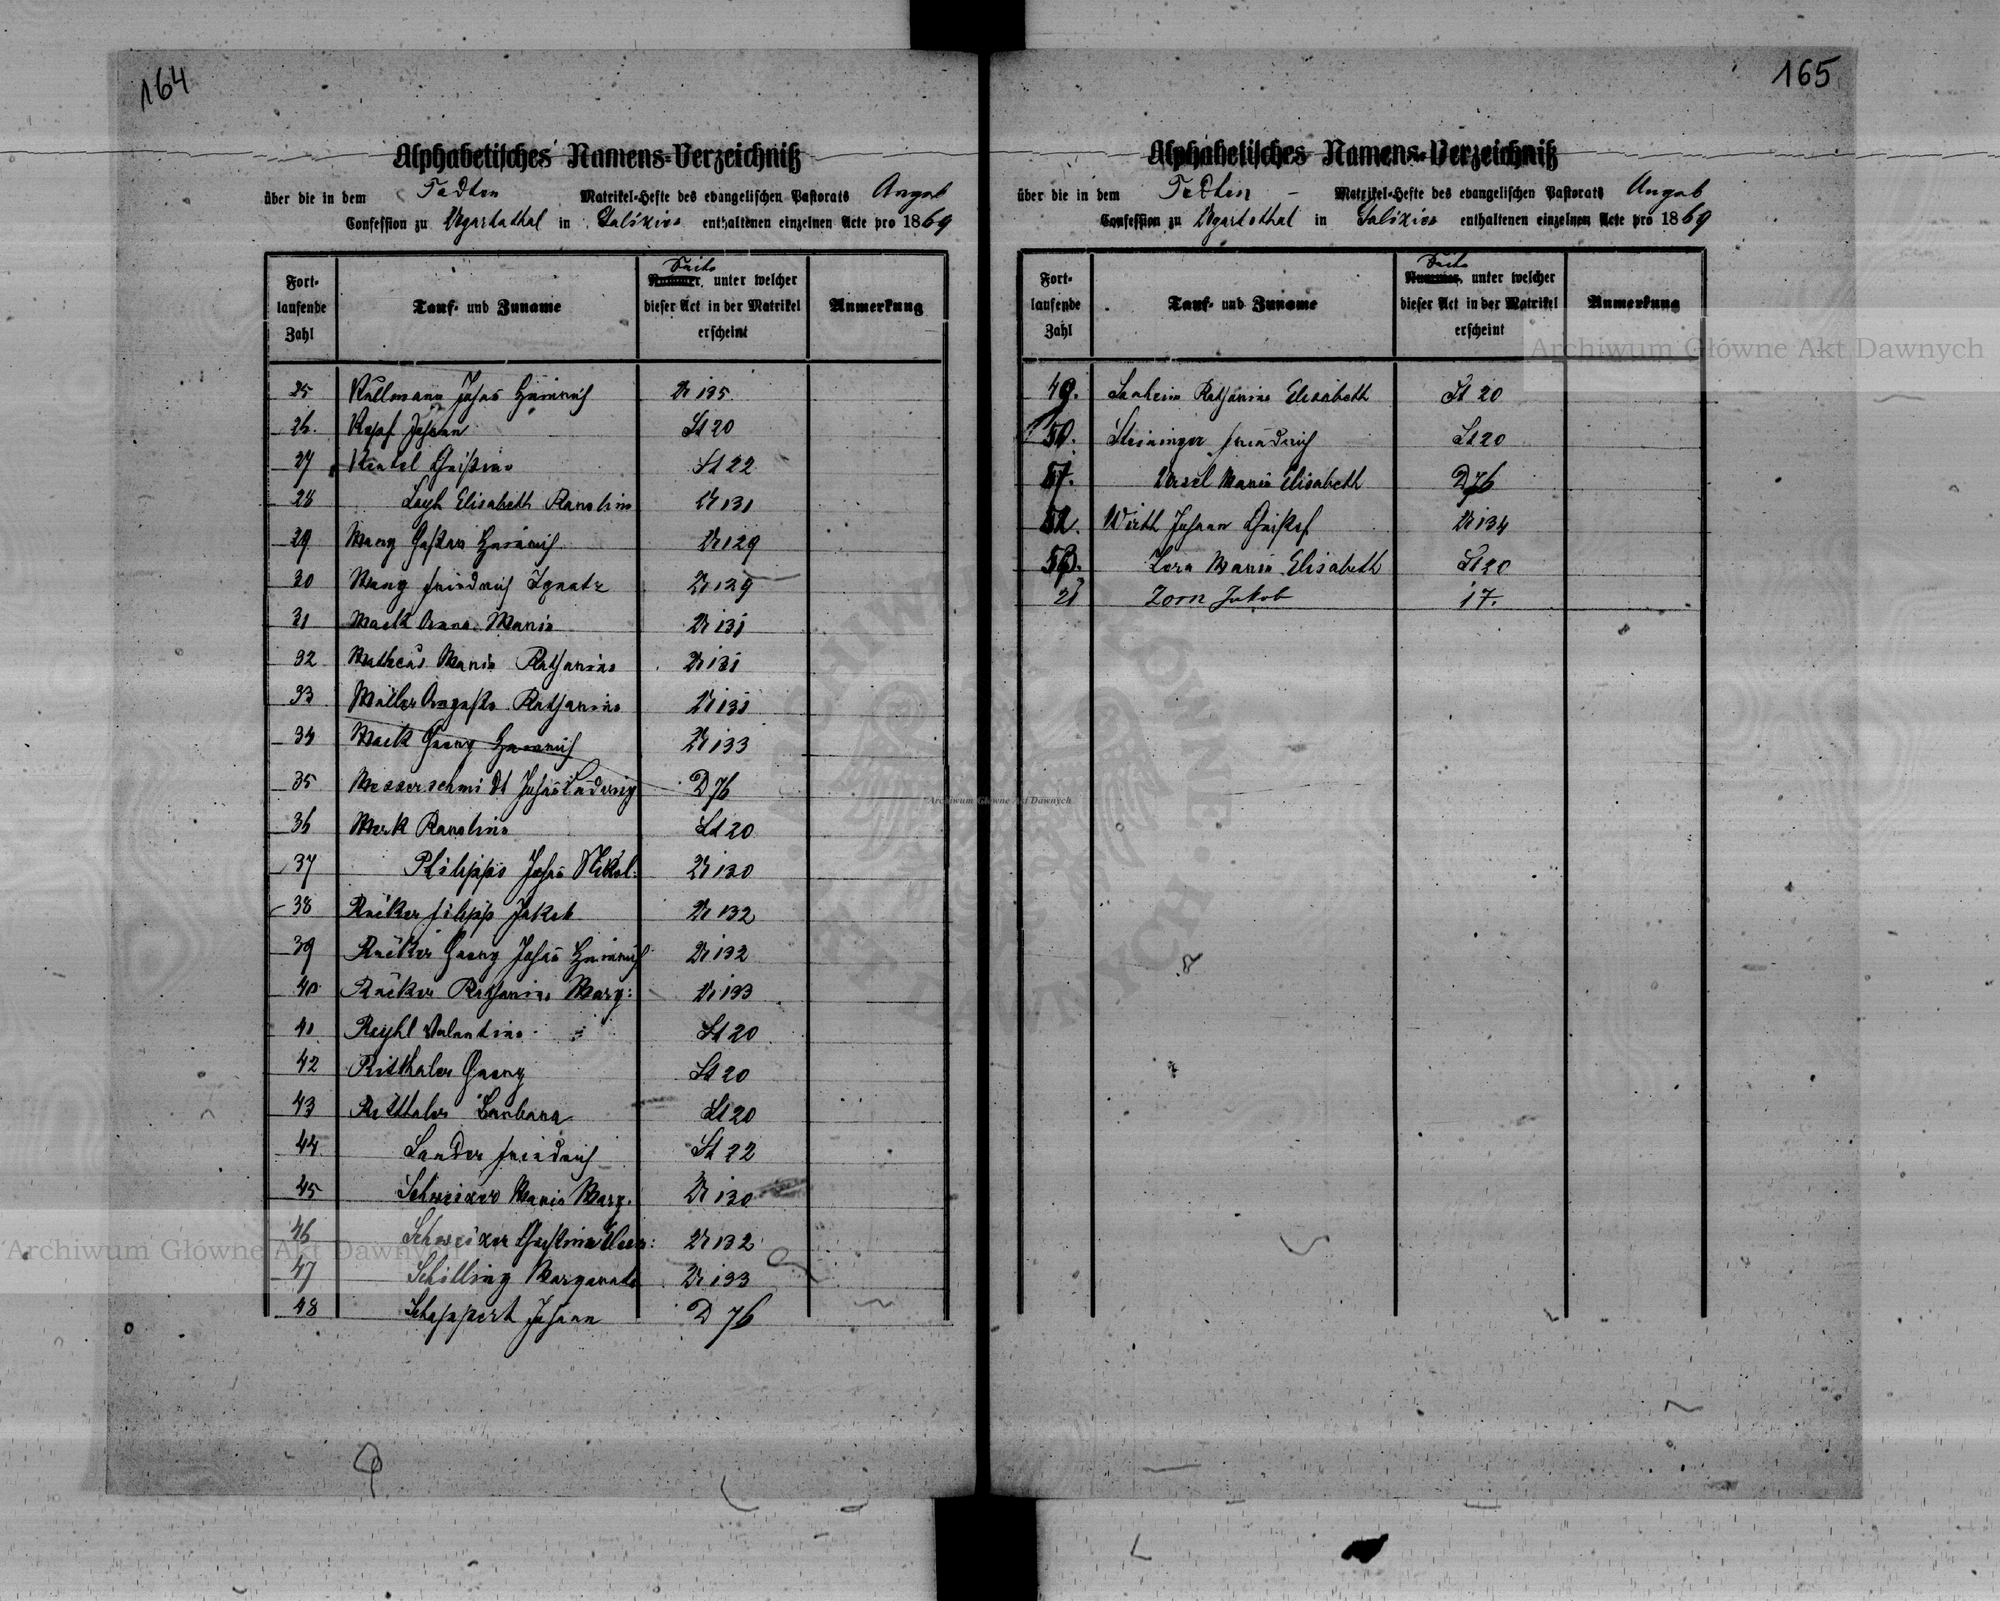 164
Alphabetisches Namens-Verzeichniß
über die in dem Todten Matrikel-Hefte des evangelischen Pastorats Augsb
Confession zu Ugartsthal in Galizien enthaltenen einzelnen Acte pro 1869
Fort-laufende Zahl
Tauf- und Zuname
Seite
Nummer, unter welcher dieser Act in der Matrikel erscheint
Anmerkung
25 Johan Heinrich 135
26. Johann St 20
27 St 22
28 Elisabeth Karolina 131
29 Manz Gustav Heinrich 129
30 Manz Friedrich Ignatz 129
31 Mack Anna Maria 131
32 Matheis Maria Katharina 131
33 Müller Augusta Katharina 131
34 Mack Georg Heinrich 133
35 Messerschmidt Johan Ludwig D 76
36 Merk Karolina St 20
37 Philipps Johan Nikol: 130
38 Filipp Jakob 132
39 Georg Johan Heinrich 132
40 Katharina Marg: 133
41 Reyhl Valentine St 20
42 Ritthaler Georg St 20
43 Ritthaler Barbara St 20
44 Sander Friedrich St 22
45 Schweizer Maria Marg. 130
46 Schweizer 132
47 Schilling Margaretha 133
48 Johann D 76
165
Alphabetisches Namens-Verzeichniß
über die in dem Todten – Matrikel-Hefte des evangelischen Pastorats Augsb
Confession zu Ugartsthal in Galizien enthaltenen einzelnen Acte pro 1869
Fort-laufende Zahl
Tauf- und Zuname
Seite
Nummer, unter welcher dieser Act in der Matrikel erscheint
Anmerkung
49. Katharina Elisabeth St 20
50. Steininger Friedrich St 20
51. Maria Elisabeth D 76
52. Wirth Johann 134
53. Maria Elisabeth St 20
21 Zorn Jakob 17.
Archiwum Główne Akt Dawnych
Archiwum Główne Akt Dawnych
Archiwum Główne Akt Dawnych